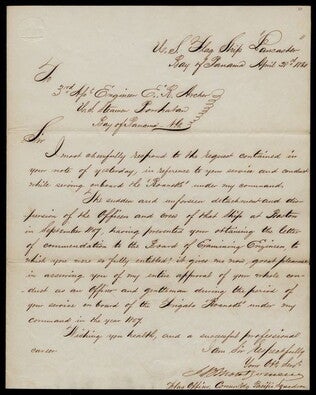 U. S. Flag Ship Lancaster
Bay of Panama April 21st 1860
To
3rd Asst Engineer E. R. Archer
U.S. Steamer Powhatan
Bay of Panama
Sir
I most cheerfully respond to the request contained in
your note of yesterday, in reference to your service and conduct
while serving onboard the "Roanoke" under my command.
The sudden and unforseen detachment and dis-
persion of the Officers and crew of that Ship at Boston
in September 1857, having prevented your obtaining the letter of
commendation to the Board of Examining Engineers, to
which you were so fully entitled: it gives me now, great pleasure
in assuring you of my entire approval of your whole con-
duct as an Officer and gentleman during the period of
your service on board of the Frigate Roanoke under my
command in the year 1857
Wishing you health, and a successful professional
career
I am Sir Respectfully
Your Obt. Servt.
J B Montgomery
Flag Officer Comdg Pacific Squadron